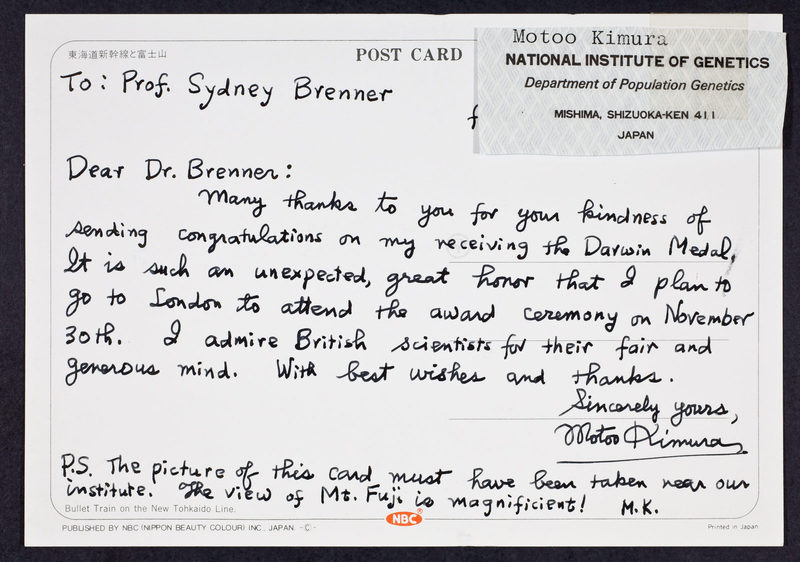 東海道新幹線と富士山
POST CARD
Motoo Kimura
NATIONAL INSTITUTE OF GENETICS
Department of Population Genetics
MISHIMA, SHIZUOKA-KEN 411
JAPAN
To: Prof. Sydney Brenner
f
Dear Dr. Brenner:
Many thanks to you for your kindness of
sending congratulations on my receiving the Darwin Medal.
It is such an unexpected, great honor that I plan to
go to London to attend the award ceremony on November
30th. I admire British scientists for their fair and
generous mind. With best wishes and thanks.
Sincerely yours,
Motoo Kimura
P.S. The picture of this card must have been taken near our
institute. The view of Mt. Fuji is magnificient! M.K.
Bullet Train on the New Tohkaido Line.
NBC®
PUBLISHED BY NBC (NIPPON BEAUTY COLOUR) INC., JAPAN -©-
Printed in Japan